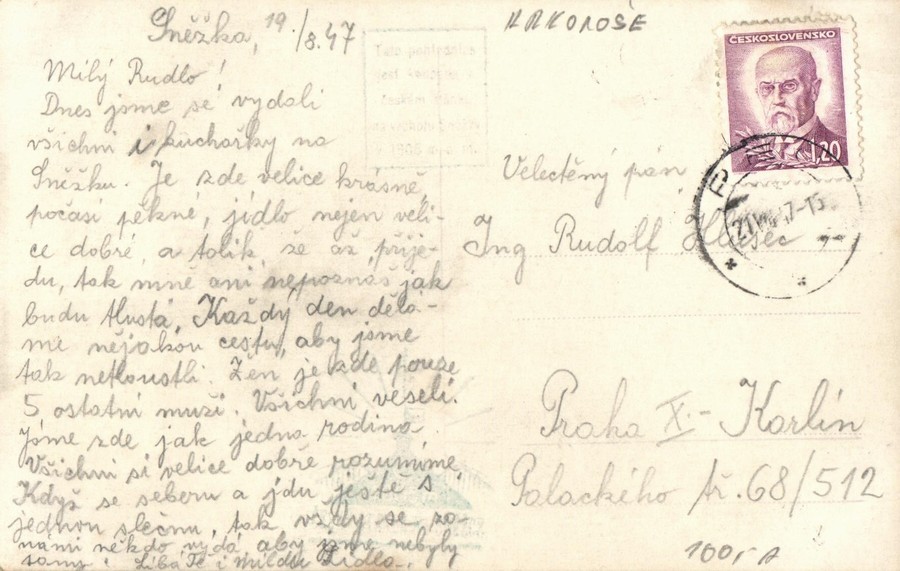 Sněžka, 19/8.47
Milý Rudlo!
Dnes jsme se vydali
všichni i kuchařky na
Sněžku. Je zde velice krásně,
počasí pěkné, jídlo nejen veli-
ce dobré, a tolik, že až přije-
du, tak mně ani nepoznáš jak
budu tlustá. Každý den dělá-
me nějakou cestu, aby jsme
tak netloustli. Žen je zde pouze
5 ostatní muži. Všichni veselí.
Jsme zde jak jedna rodina.
Všichni si velice dobře rozumíme.
Když se seberu a jdu ještě s
jednou slečnu, tak vždy se za
námi někdo vydá, aby jsme nebyly
samy. Líbá Tě i Mildu Lidla.
Tato pohlednice
českém
v 1908
KRKONOŠE
ČESKOSLOVENSKO
1,20
21 VIII 47-15
Velectěný pán
Ing Rudolf
Praha X.- Karlín
Palackého tř. 68/512
100,-